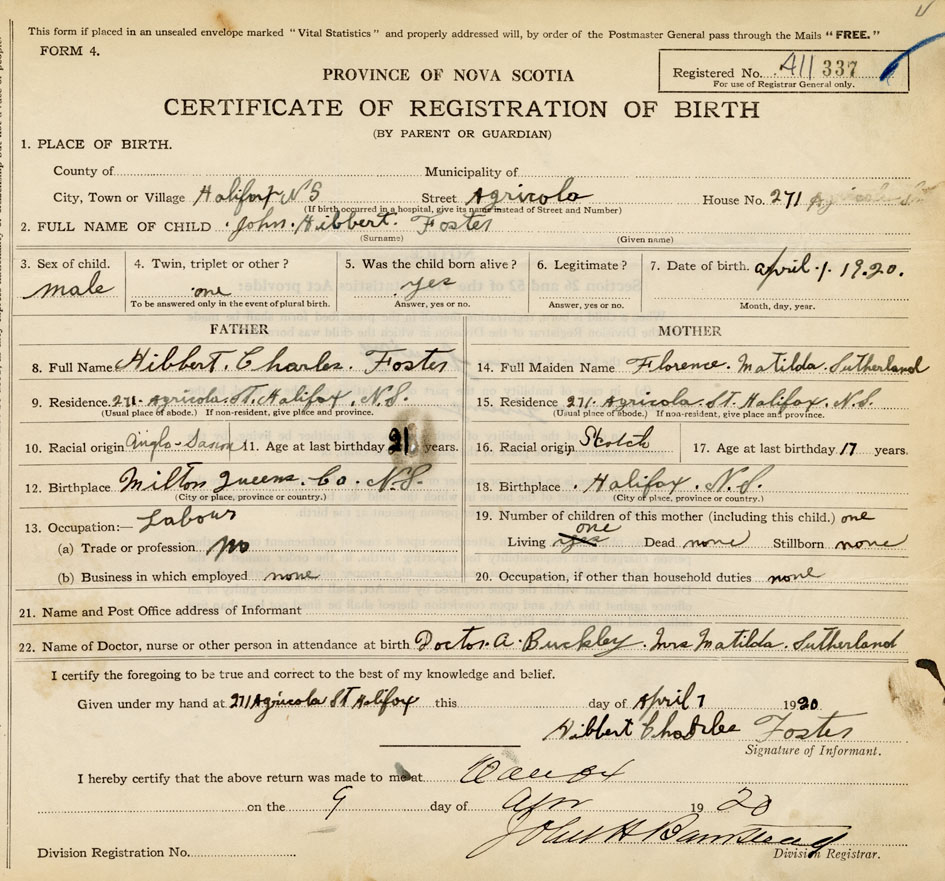 This form if placed in an unsealed envelope marked "Vital Statistics" and properly addressed will, by order of the Postmaster General pass through the Mails "FREE."
FORM 4.
Registered No. 411 337
For use of Registrar General only.
PROVINCE OF NOVA SCOTIA
CERTIFICATE OF REGISTRATION OF BIRTH
(BY PARENT OR GUARDIAN)
1. PLACE OF BIRTH.
County of Municipality of
City, Town or Village Halifax N S Street Agricola House No. 271
(If birth occurred in a hospital, give its name instead of Street and Number)
2. FULL NAME OF CHILD John. Hibbert. Foster
(Surname) (Given name)
3. Sex of child. 4. Twin, triplet or other? 5. Was the child born alive? 6. Legitimate? 7. Date of birth. April. 1. 1920.
male one yes
To be answered only in the event of plural birth. Answer, yes or no. Answer, yes or no. Month, day, year.
FATHER MOTHER
8. Full Name Hibbert. Charles. Foster 14. Full Maiden Name Florence. Matilda. Sutherland
9. Residence. 271. Agricola. St. Halifax. N.S. 15. Residence 271. Agricola. St. Halifax. N.S.
(Usual place of abode.) If non-resident, give place and province. (Usual place of abode.) If non-resident, give place and province.
10. Racial origin Anglo-Saxon 11. Age at last birthday 21 years. 16. Racial origin Skotch 17. Age at last birthday 17 years.
12. Birthplace Milton Queens. Co. N.S. 18. Birthplace Halifax. N.S.
(City or place, province or country.) (City of place, province or country.)
13. Occupation:— Labour 19. Number of children of this mother (including this child.) one
(a) Trade or profession no Living yes one Dead none Stillborn none
(b) Business in which employed none 20. Occupation, if other than household duties none
21. Name and Post Office address of Informant
22. Name of Doctor, nurse or other person in attendance at birth Doctor. A. Buckley. Mrs Matilda. Sutherland
I certify the foregoing to be true and correct to the best of my knowledge and belief.
Given under my hand at 271 Agricola St Halifax this day of April 7 1920
Hibbert Charlee Foster
Signature of Informant.
I hereby certify that the above return was made to me at
on the 9 day of Apr 19 20
John H Barnstead
Division Registrar.
Division Registration No.